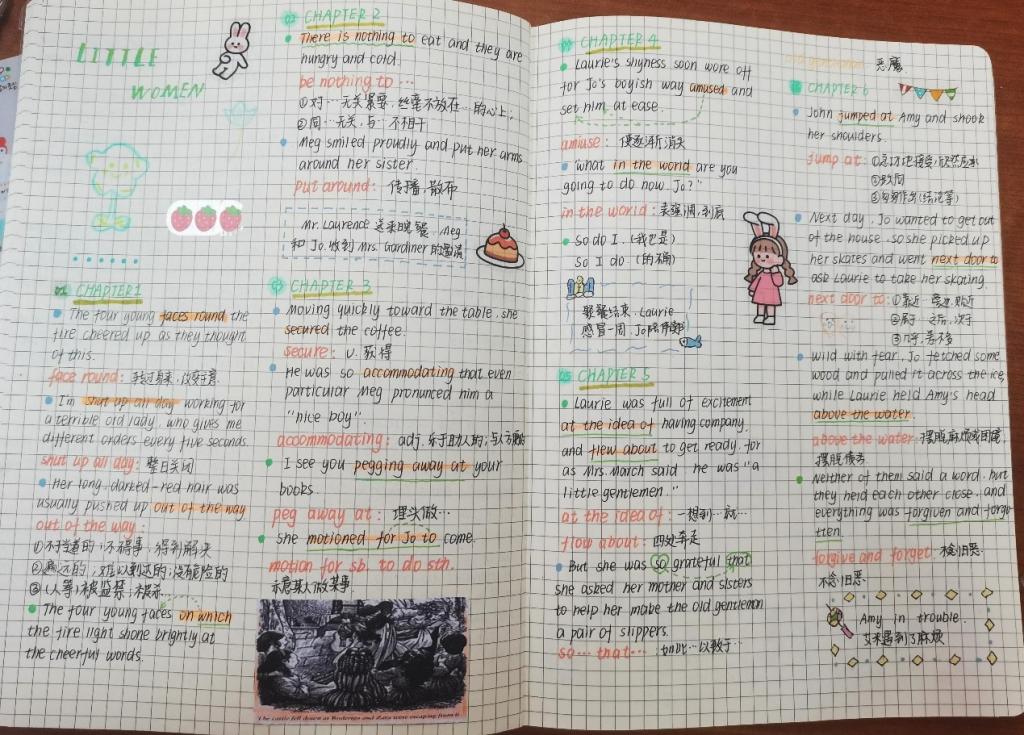 LITTLE
WOMEN
01 CHAPTER1
The four young faces round the
fire cheered up as they thought
of this.
face round: 转过身来,改变主意.
I'm shut up all day working for
a terrible old lady, who gives me
different orders every five seconds.
shut up all day: 整日关闭
Her long, darked-red hair was
usually pushed up out of the way
out of the way:
①不挡道的,不碍事,得到解决
远的,难以到达的;没危险的
③(人等)被监禁,被杀.
The four young faces on which
the fire light shone brightly at
the cheerful words.
02 CHAPTER 2
There is nothing to eat and they are
hungry and cold.
be nothing to …
①对…无关紧要,丝毫不放在…的心上,
②同…无关,与…不相干
Meg smiled proudly and put her arms
around her sister.
put around: 传播,散布
Mr. Laurence 送来晚餐, Meg
和 Jo. 收到 Mrs. Gardiner 的邀请
CHAPTER 3
Moving quickly toward the table, she
secured the coffee.
secure: v. 获得
He was so accommodating that even
particular Meg pronunced him a
"nice boy".
accommodating: adj. 乐于助人的;与人方便的
I see you pegging away at your
books.
peg away at: 埋头做…
She motioned for Jo to come.
motion for sb. to do sth.
示意某人做某事.
CHAPTER 4
Laurie's shyness soon wore off
for Jo's boyish way amused and
set him at ease.
amuse: 使逐渐消失
"what in the world are you
going to do now Jo?"
in the world: 表强调,到底
So do I. (我也是)
So I do (的确)
聚餐结束, Laurie
感冒一周, Jo
05 CHAPTER 5
Laurie was full of excitement
at the idea of having company,
and flew about to get ready, for
as Mrs. March said he was "a
little gentlemen."
at the idea of: 一想到…就…
flow about: 四处奔走
But she was so grateful that
she asked her mother and sisters
to help her make the old gentleman
a pair of slippers.
so… that…: 如此…以致于…
恶魔.
CHAPTER 6
John jumped at Amy and shook
her shoulders.
Jump at:
Next day, Jo wanted to get out
of the house. so she picked up
her skates and went next door to
ask Laurie to take her skating.
next door to: ①靠近
wild with fear, Jo fetched some
wood and pulled it across the ice,
while Laurie held Amy's head
above the water.
above the water: 摆脱麻烦或困难,
摆脱债务
Neither of them said a word, but
they held each other close, and
everything was forgiven and forgo
tten.
forgive and forget: 不念旧恶.
不念旧恶.
Amy in trouble.
艾米遇到了麻烦